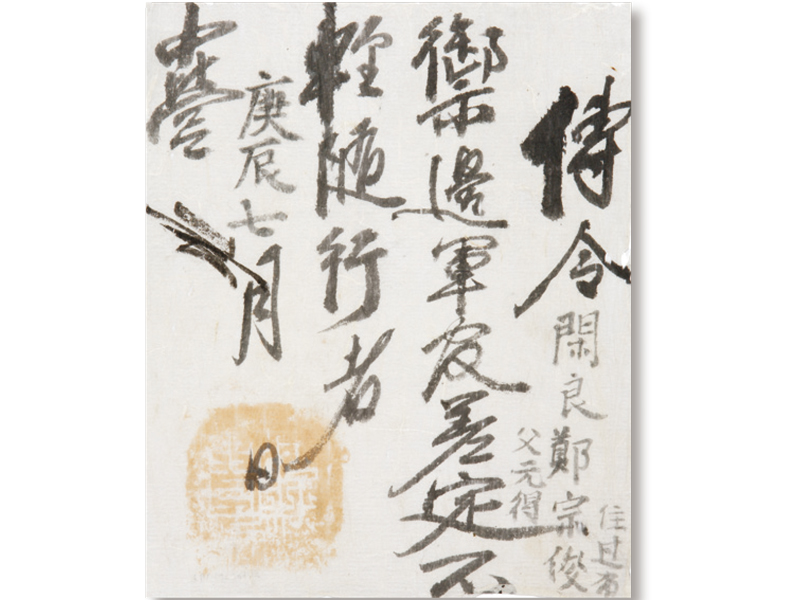 傳令 閑良鄭宗俊
父元得
住
禦邊軍官差定不
輕隨行者
庚辰七月 日
中營